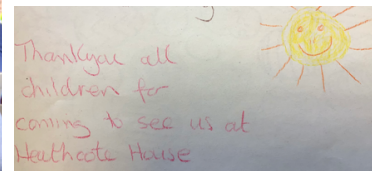 Thankyou all
children for
coming to see us at
Heathcote House